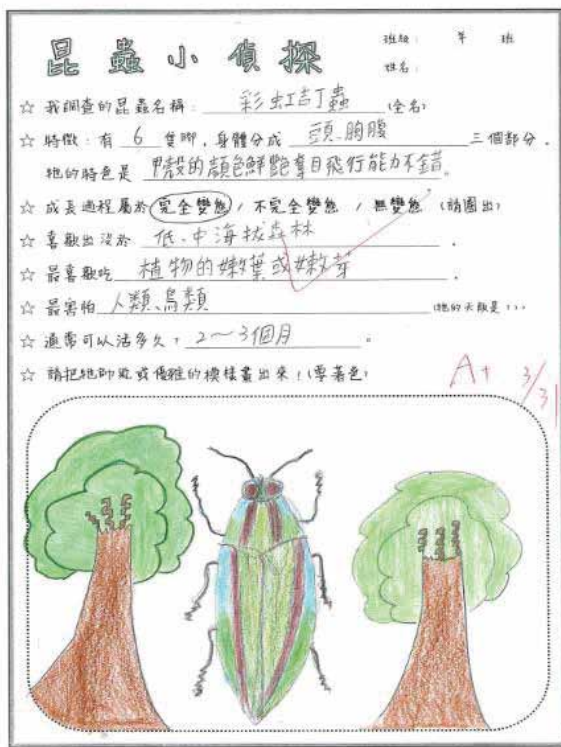 昆蟲小偵探
班級： 年 班
姓名：
☆ 我調查的昆蟲名稱：彩虹吉丁蟲(全名)
☆ 特徵：有 6 隻腳，身體分成 頭、胸腹 三個部分，
牠的特色是 甲殼的顏色鮮艷奪目飛行能力不錯。
☆ 成長過程屬於 完全變態 / 不完全變態 / 無變態 (請圈出)
☆ 喜歡出沒於 低、中海拔森林。
☆ 最喜歡吃 植物的嫩葉或嫩芽。
☆ 最害怕 人類、鳥類 (牠的天敵是???)
☆ 通常可以活多久？2～3個月。
☆ 請把牠帥氣或優雅的模樣畫出來！(要著色)
A+ 3/31